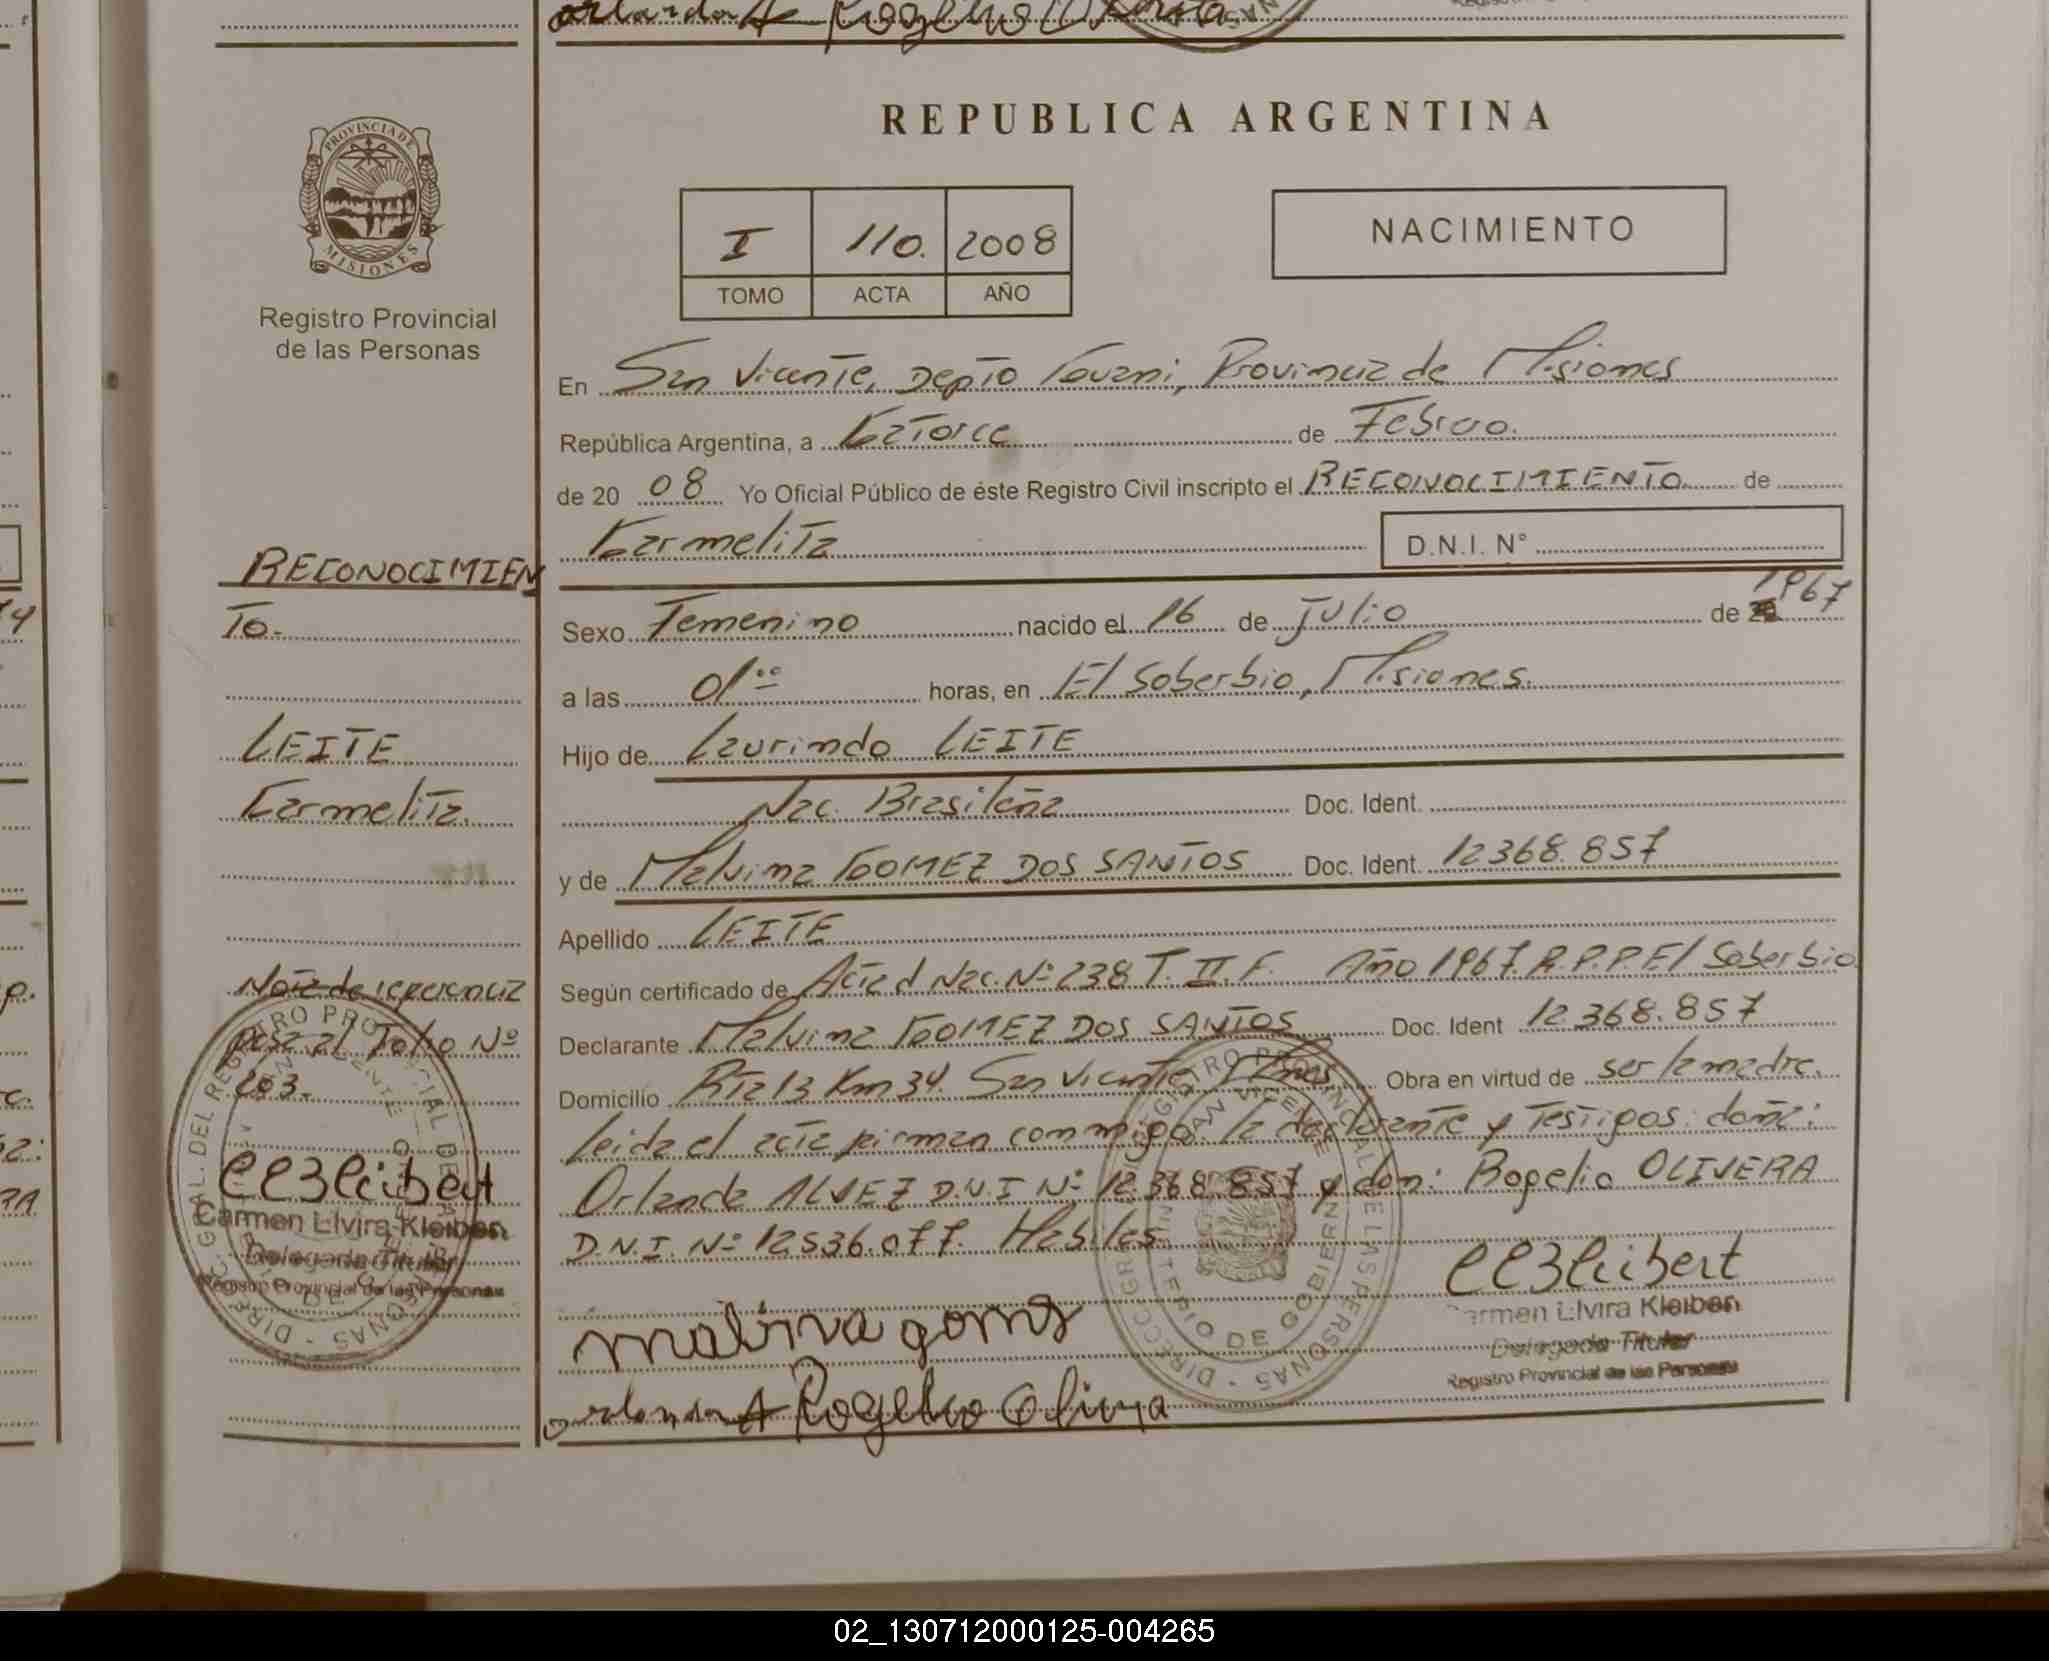 PROVINCIA DE
MISIONES
Registro Provincial
de las Personas
REPUBLICA ARGENTINA
I 110. 2008
TOMO ACTA AÑO
NACIMIENTO
En San Vicente, Depto Guarani, Provincia de Misiones
República Argentina, a Catorce de Febrero.
de 20 08 Yo Oficial Público de éste Registro Civil inscripto el RECONOCIMIENTO de
Carmelita D.N.I. N°
Sexo Femenino nacido el 16 de Julio de 1967
a las 01:00 horas, en El Soberbio, Misiones.
Hijo de Laurindo LEITE
Nac. Brasileña Doc. Ident.
y de Malvina GOMEZ DOS SANTOS Doc. Ident. 12368.857
Apellido LEITE
Según certificado de Acta d Nac. Nº 238 T. II. F. Año 1967. R.P.P. El Soberbio
Declarante Malvina GOMEZ DOS SANTOS Doc. Ident 12.368.857
Domicilio Rta 13 Km 34. San Vicente, Mnes Obra en virtud de ser la madre.
Leida el acta firman conmigo la declarante y Testigos: doña:
Orlanda ALVEZ D.N.I Nº 12.368.857 y don: Rogelio OLIVERA
D.N.I. Nº 12.536.077. Habiles
malviva gomz
Rogelio Olivera
Carmen Elvira Kleibert
Delegada Titular
Registro Provincial de las Personas
RECONOCIMIEN
TO.
LEITE
Carmelita.
Nota de referencia
pasa al Folio Nº
203.
Carmen Elvira Kleibert
Delegada Titular
Registro Provincial de las Personas
02_130712000125-004265